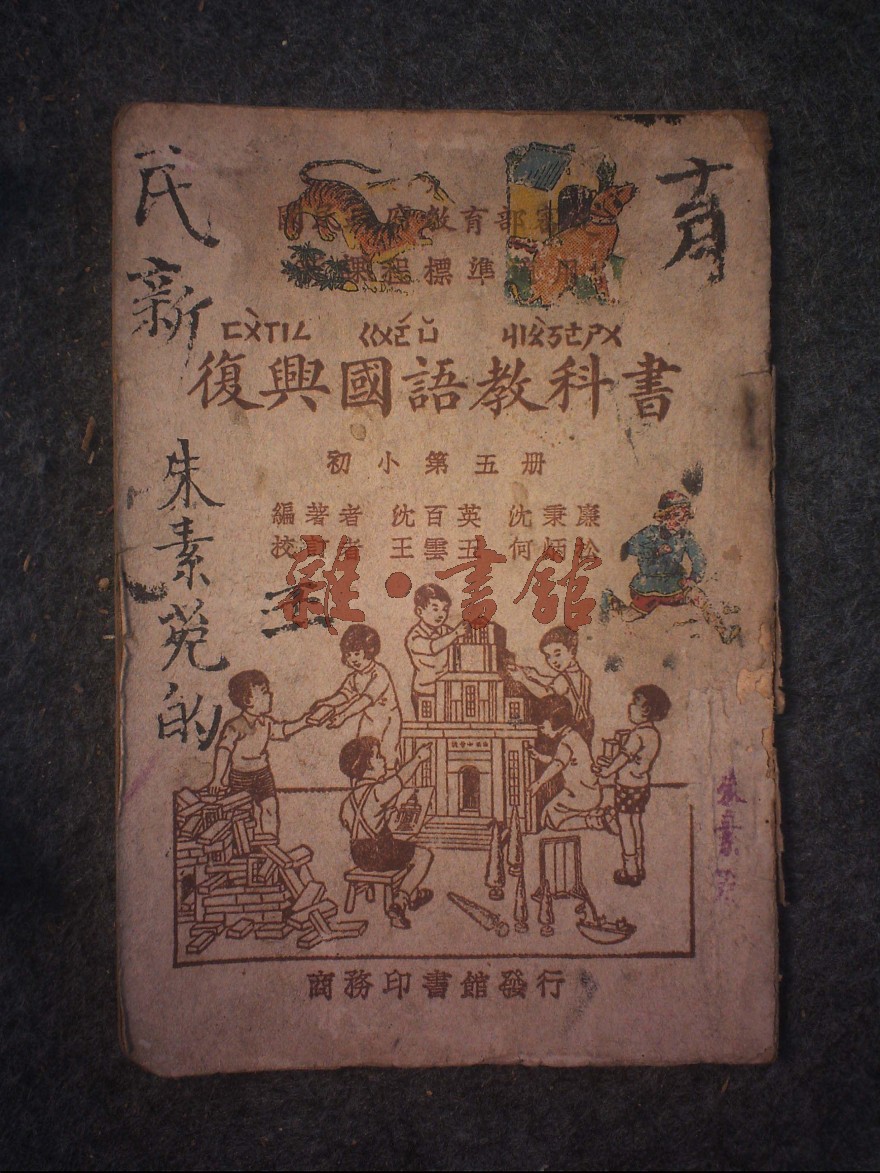 教育部審
課程標準
ㄈㄨˋㄒㄧㄥ ㄍㄨㄛˊㄩˇ ㄐㄧㄠˋㄎㄜㄕㄨ
復興國語教科書
初小第五册
編著者 沈百英 沈秉廉
校訂者 王雲五 何炳松
雜·書館
商務印書館發行
民新
朱素苑的
五
朱素苑